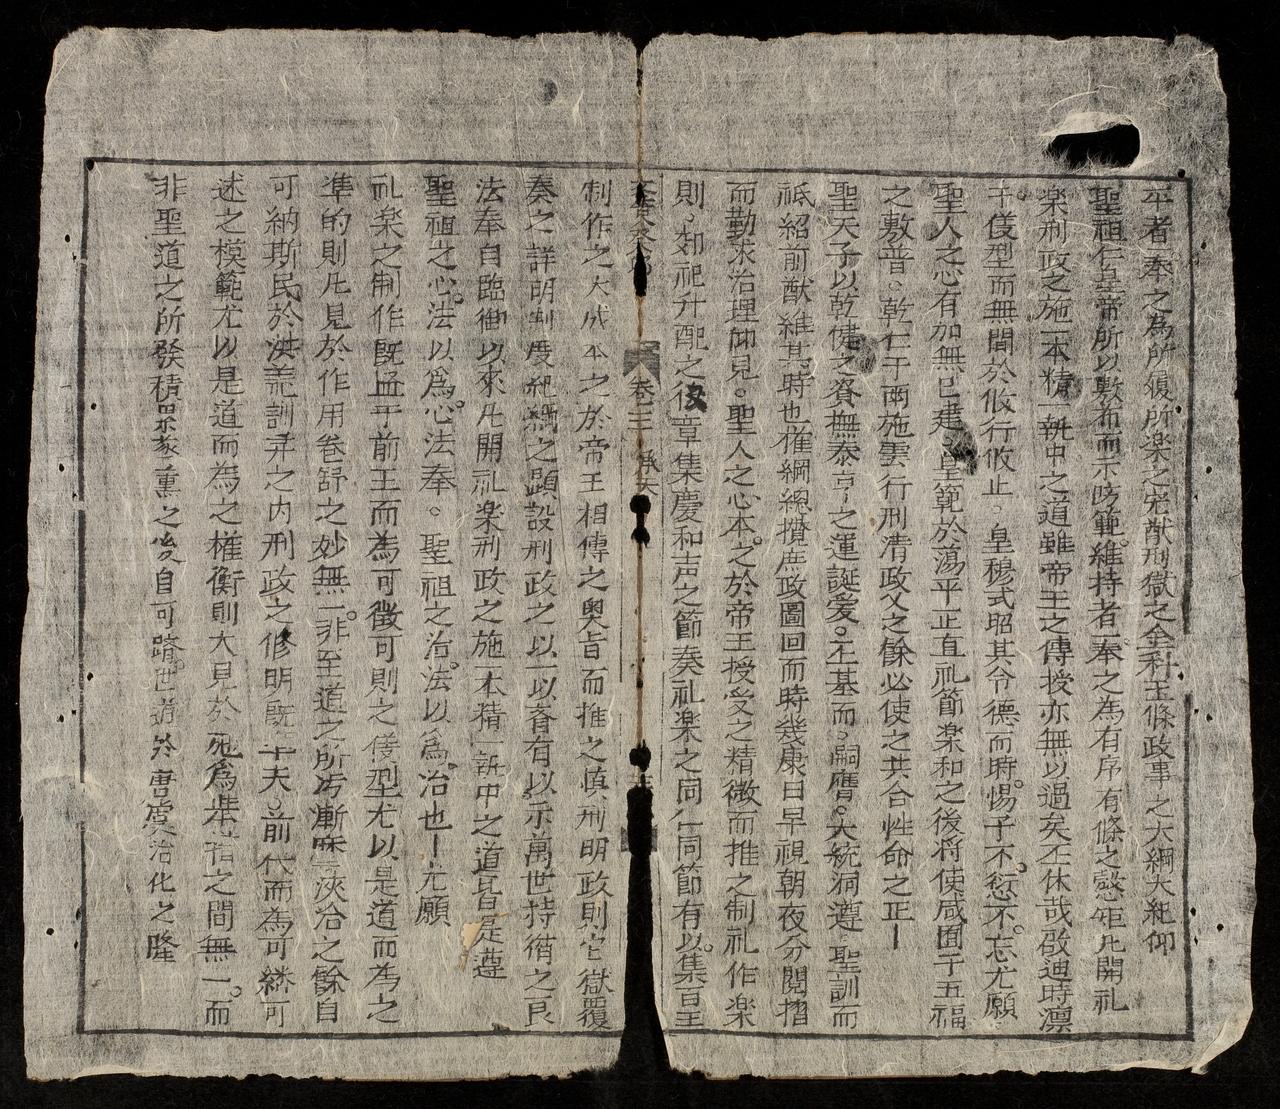 卒者奉之為所履所楽之宪猷刑獄之金科玉條政事之大綱大紀仰
聖祖仁皇帝所以敷布而示防範維持者一奉之為有序有條之彀矩凡開礼
楽刑政之施一本精一執中之道雖帝王之傳授亦無以過矣丕休哉啟迪時凛
于儀型而無間於攸行攸止皇穆式昭其令德而時惕予不愆不忘尤願
聖人之心有加無已建皇範於蕩平正直礼節楽和之後将使咸囿于五福
之敷普乾仁于雨施雲行刑清政乂之餘必使之共合性命之正
聖天子以乾健之資撫泰亨之運誕受丕基而嗣膺大統洞遵聖訓而
祗紹前猷維其時也催綱總攬庶政圖回而時幾康日早視朝夜分閲摺
而勤求治理仰見聖人之心本之於帝王授受之精微而推之制礼作楽
則郊祀升配之後章集慶和声之節奏礼楽之同仁同節有以集百王
卷三
制作之大成本之於帝王相傳之奥旨而推之慎刑明政則它獄覆
奏之詳明制度紀綱之顕設刑政之以一以有以示萬世持循之良
法奉自臨御以來凡開礼楽刑政之施一本精一執中之道皆是遵
聖祖之心法以爲心法奉聖祖之治法以爲治也尤願
礼楽之制作既益于前王而為可徵可則之儀型尤以是道而為之
準的則凡見於作用卷舒之妙無一非至道之所漸洽之餘自
可納斯民於訓弄之内刑政之修明既十夫前代而為可可
述之模範尤以是道而為之權衡則大見於爲準之間無一而
非聖道之所發積累薰之後自可躋世道於唐虞治化之隆